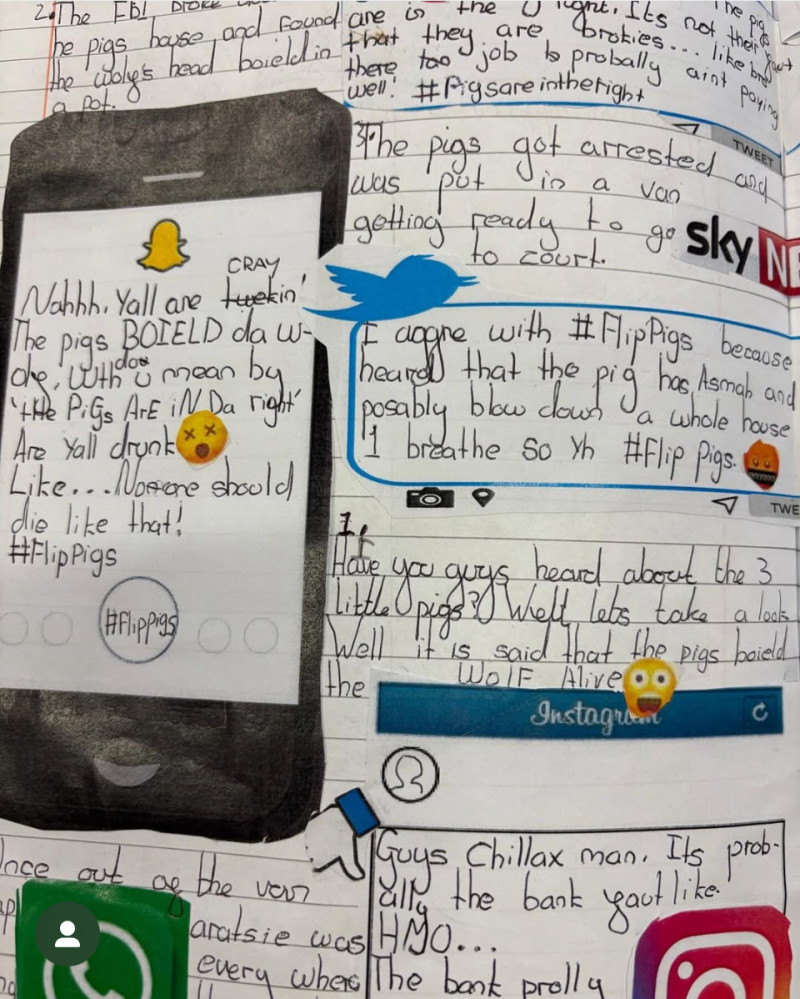 2. The FBI broke
he pigs house and found
the wolys head boield in
a pot.
are in the right. Its not their
that they are brokies... like bro
there too job is probally aint paying
well! #Pigsareintheright
The pigs
TWEET
3. The pigs got arrested and
was put in a van
getting ready to go
to court.
sky NE
CRAY
Nahhh. Yall are twekin'
The pigs BOIELD da w-
olf, Wth do u mean by
'tHe PiGs ArE iN Da right'
Are Yall drunk
Like... No one should
die like that!
#FlipPigs
#Flippigs
I aggre with #FlipPigs because
heard that the pig has Asmah and
posably blow down a whole house
1 breathe so yh #Flip Pigs.
TWE
1.
Have you guys heard about the 3
little pigs? Well, lets take a look
Well it is said that the pigs boield
the WOlF Alive
Instagram
Once out of the van
aratsie was
every where
Guys Chillax man. Its prob-
ally the bank gaut like
HMO...
The bank prolly